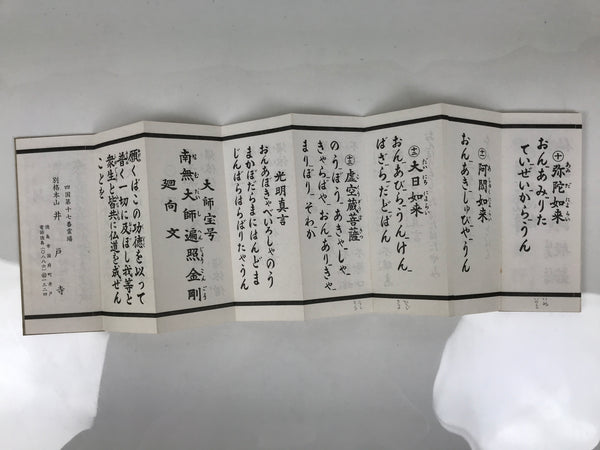 ㊉ 弥陀如来
おんあみりた
ていぜいから、うん
㊉一 阿閦如来
おん、あきしゅびや、うん
㊉二 大日如来
おんあびら、うんけん、
ばざら、だどばん
㊉三 虚空蔵菩薩
のうぼう、あきゃしゃ、
きゃらばや、おん、あり、きゃ、
まりぼり、そわか
光明真言
おんあぼきゃべいろしゃのう
まかぼだらまにはんどま
じんばらはらばりたやうん
大師宝号
南無大師遍照金剛
廻向文
願くばこの功徳を以って
普く一切に及ぼし我等と
衆生と皆共に仏道を成ぜん
ことを
四国第十七番霊場
別格本山 井戸寺